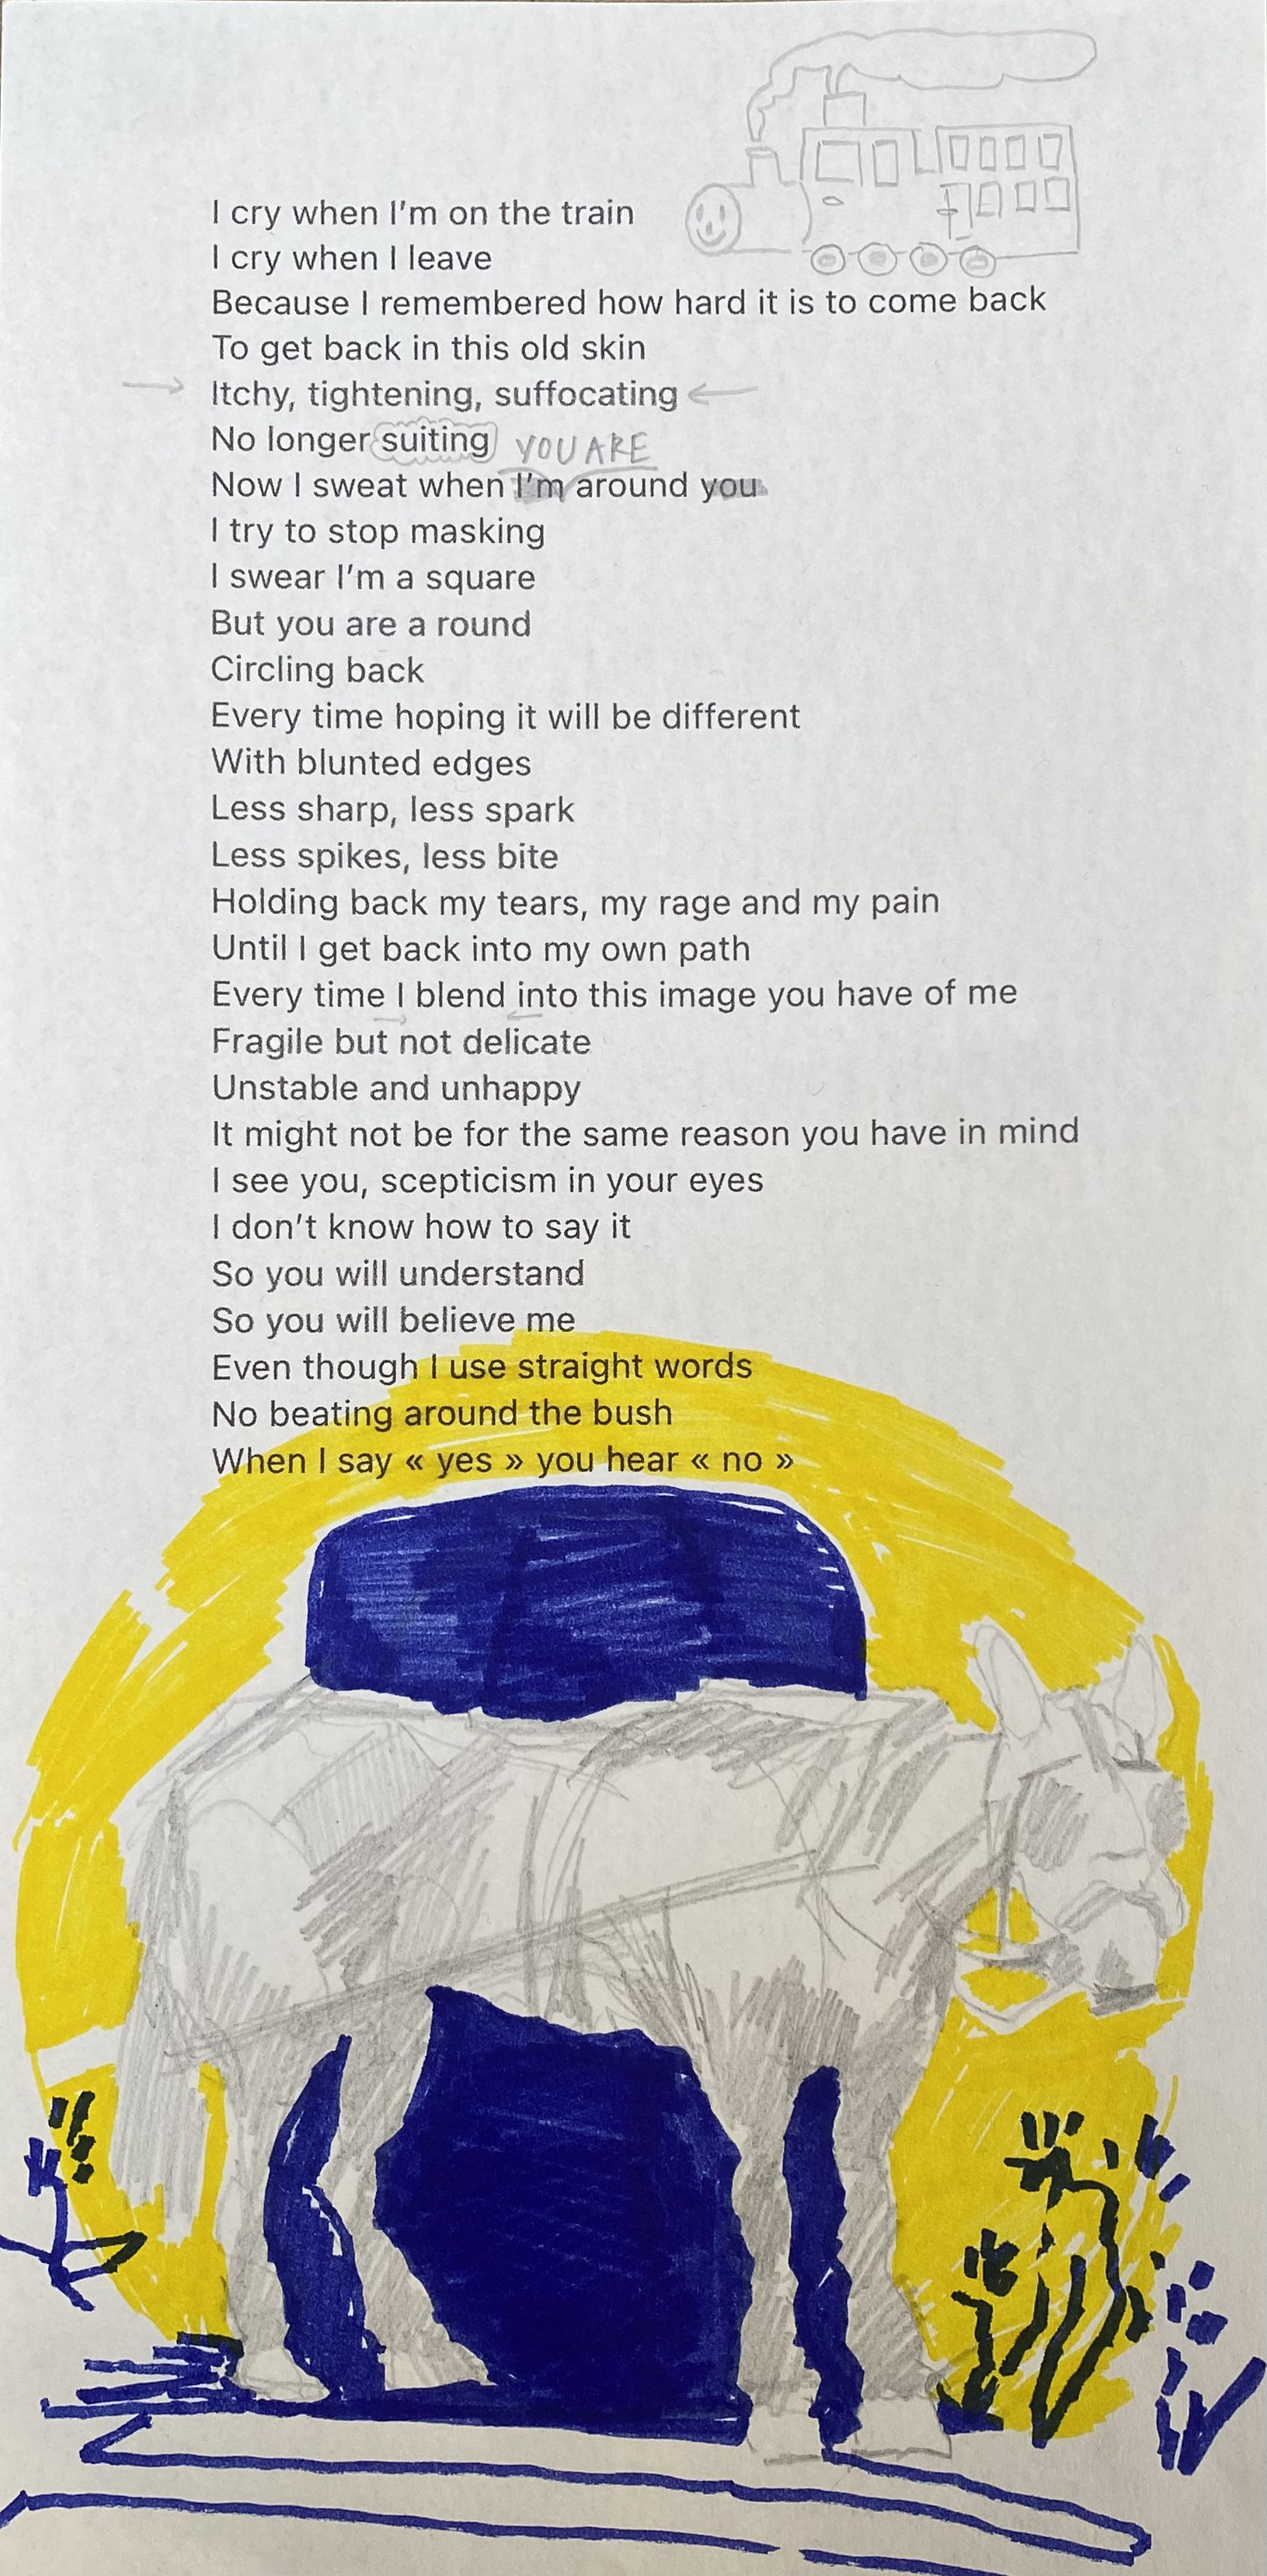 I cry when I'm on the train
I cry when I leave
Because I remembered how hard it is to come back
To get back in this old skin
Itchy, tightening, suffocating
No longer suiting
YOU ARE
Now I sweat when I'm around you
I try to stop masking
I swear I'm a square
But you are a round
Circling back
Every time hoping it will be different
With blunted edges
Less sharp, less spark
Less spikes, less bite
Holding back my tears, my rage and my pain
Until I get back into my own path
Every time I blend into this image you have of me
Fragile but not delicate
Unstable and unhappy
It might not be for the same reason you have in mind
I see you, scepticism in your eyes
I don't know how to say it
So you will understand
So you will believe me
Even though I use straight words
No beating around the bush
When I say « yes » you hear « no »